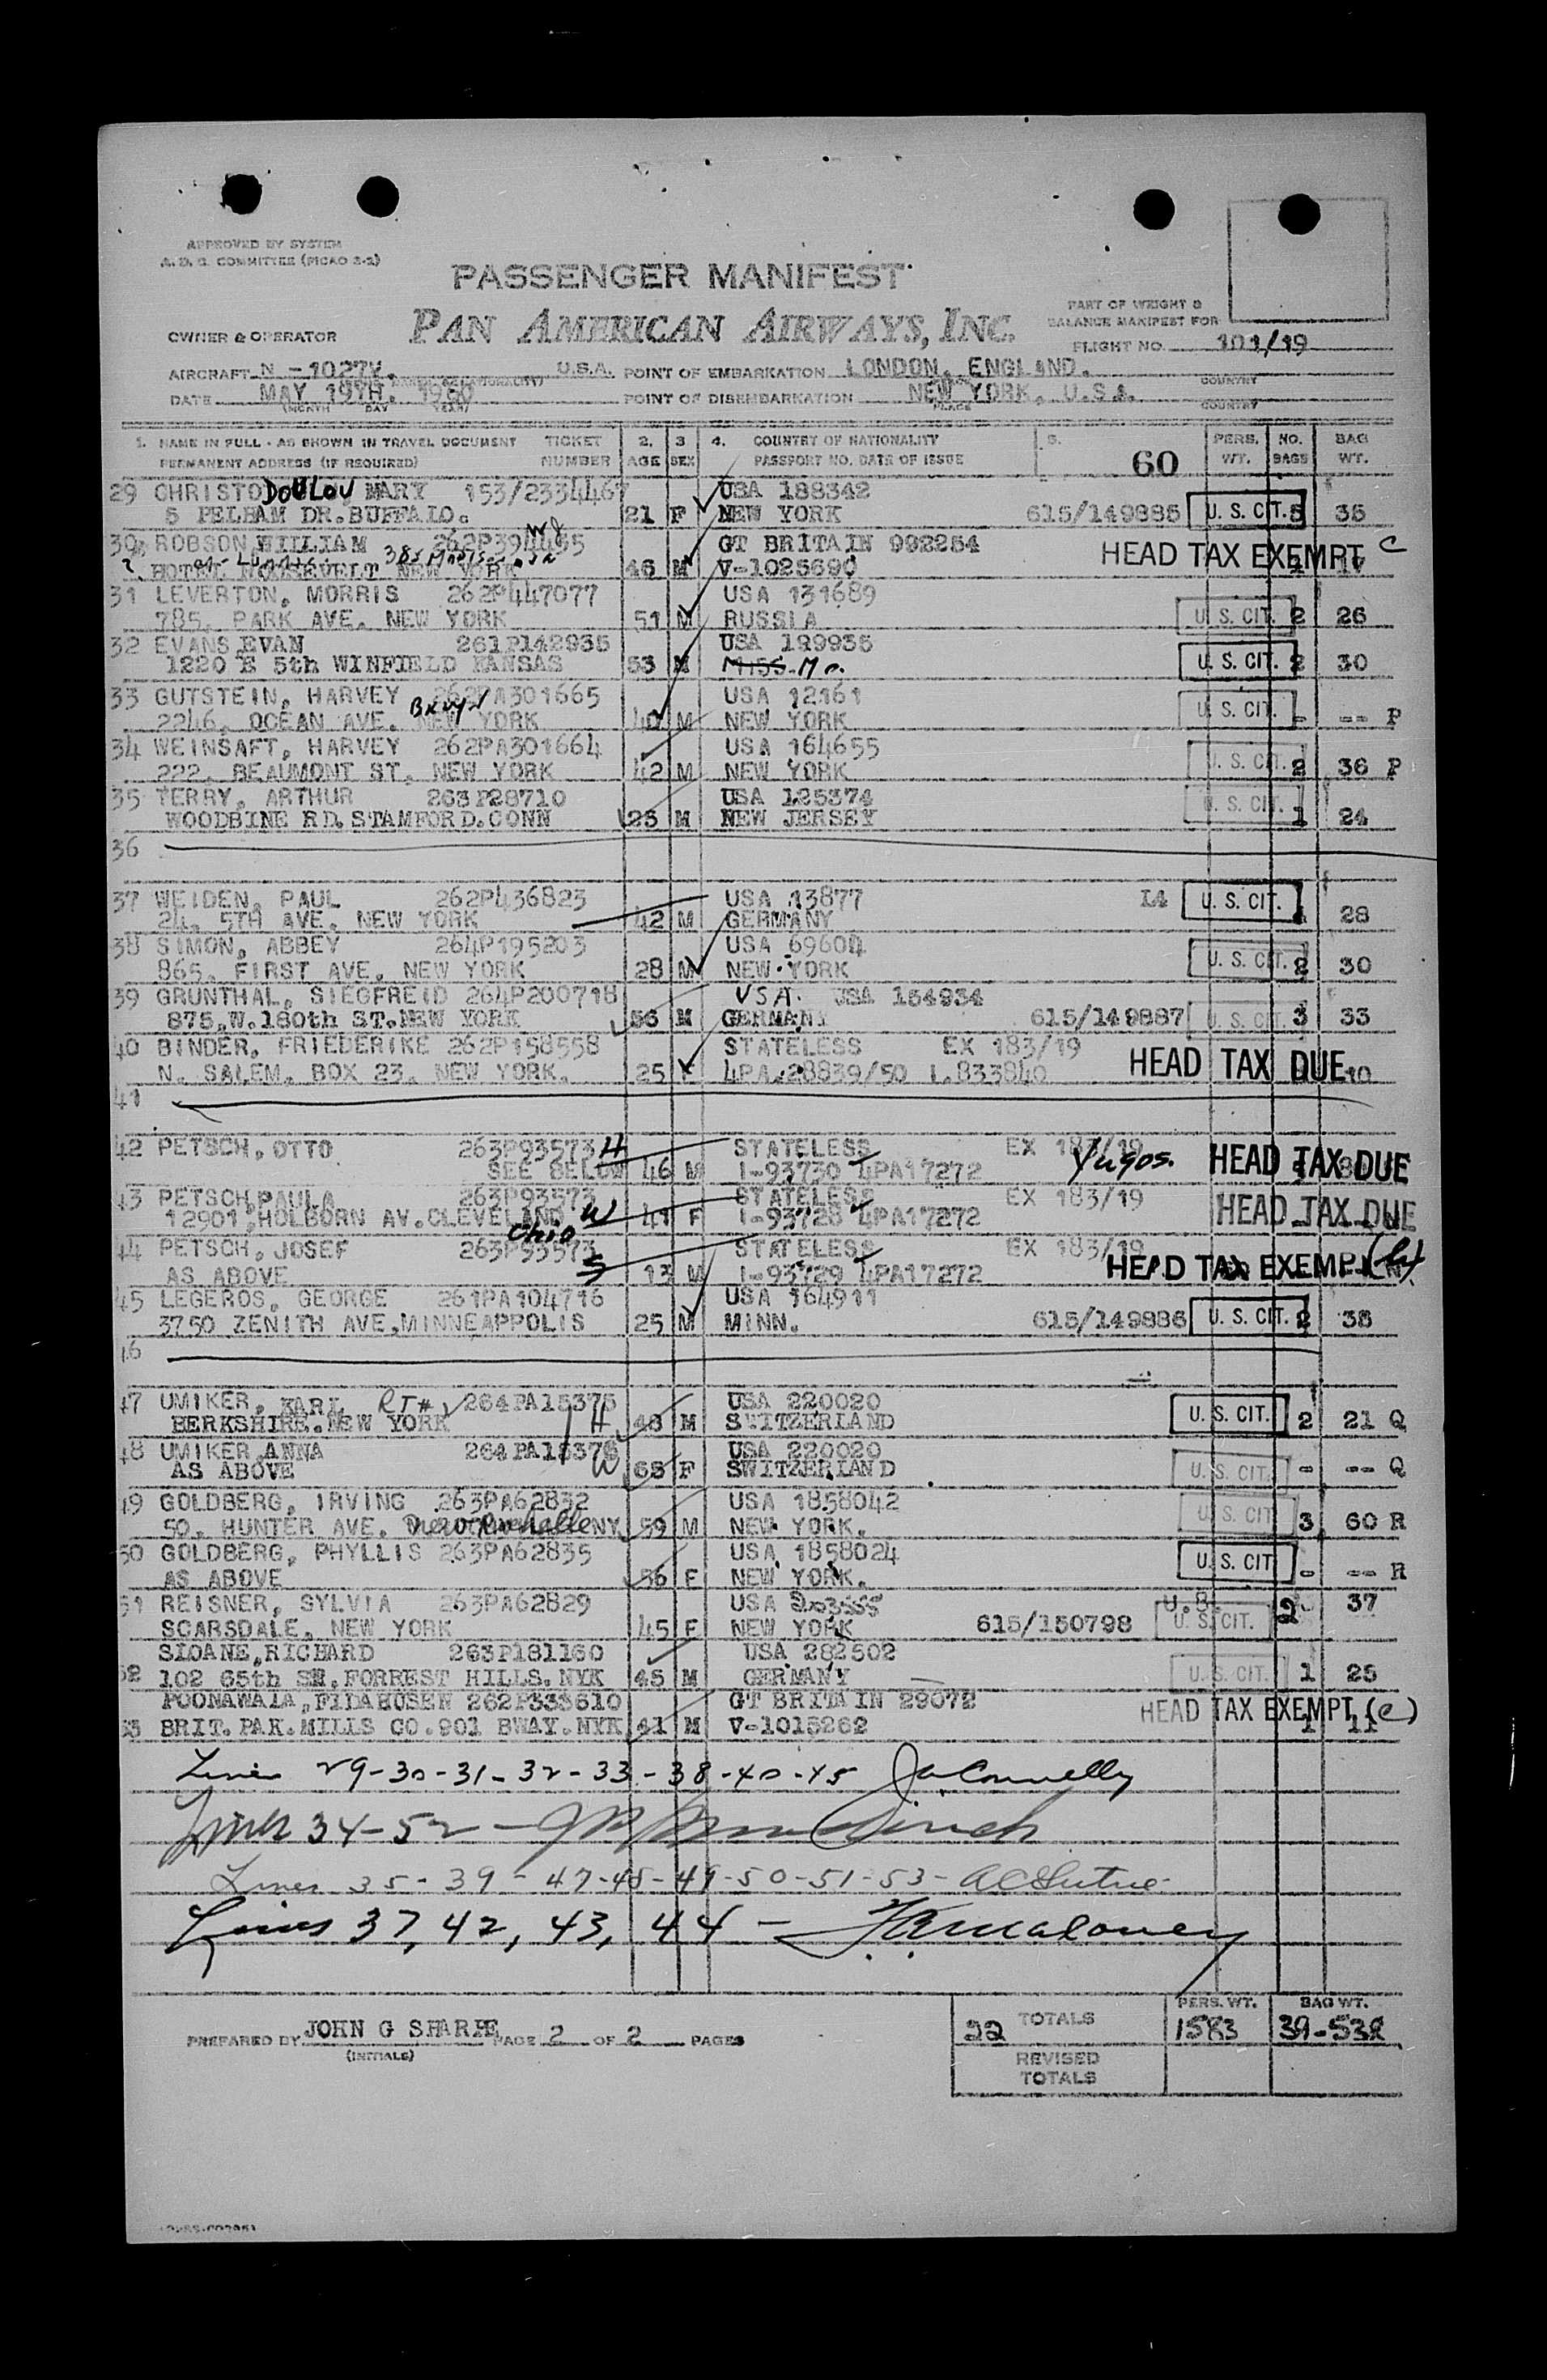 APPROVED BY SYSTEM
A. D. C. COMMITTEE (PICAO 2-2)
PASSENGER MANIFEST
PART OF WEIGHT &
BALANCE MANIFEST FOR
OWNER & OPERATOR PAN AMERICAN AIRWAYS, INC.
FLIGHT NO. 101/19
AIRCRAFT N -1027V. U.S.A. POINT OF EMBARKATION LONDON, ENGLAND. COUNTRY
DATE MAY 19TH. 1950 POINT OF DISEMBARKATION NEW YORK, U.S.A.
(MONTH DAY YEAR) PLACE COUNTRY
1. NAME IN FULL - AS SHOWN IN TRAVEL DOCUMENT TICKET 2. 3 4. COUNTRY OF NATIONALITY 5. PERS. NO. BAG
PERMANENT ADDRESS (IF REQUIRED) NUMBER AGE SEX PASSPORT NO. DATE OF ISSUE 60 WT. BAGS WT.
29 CHRISTODOULOU MARY 153/2334467 USA 188342
5 PELHAM DR.BUFFALO. 21 F NEW YORK 615/149885 U. S. CIT. 5 35
30 ROBSON WILLIAM 262P394455 GT BRITAIN 992254
HOTEL ROOSEVELT NEW YORK 46 M V-1025690 HEAD TAX EXEMPT C
31 LEVERTON, MORRIS 262P447077 USA 131689
785, PARK AVE. NEW YORK 51 M RUSSIA U. S. CIT. 2 26
32 EVANS EVAN 261P142935 USA 199935
1220 E 5th WINFIELD KANSAS 53 M MISS. Mo. U. S. CIT. 2 30
33 GUTSTEIN, HARVEY 262PA301665 USA 12161
2246, OCEAN AVE. NEW YORK 40 M NEW YORK U. S. CIT. - -- P
34 WEINSAFT, HARVEY 262PA301664 USA 164655
222, BEAUMONT ST, NEW YORK 42 M NEW YORK U. S. CIT. 2 36 P
35 TERRY, ARTHUR 263P28710 USA 125374
WOODBINE RD.STAMFORD.CONN 25 M NEW JERSEY U. S. CIT. 1 24
36
37 WEIDEN, PAUL 262P436823 USA 13877
24, 5TH AVE. NEW YORK 42 M GERMANY L4 U. S. CIT. 1 28
38 SIMON, ABBEY 264P195203 USA 69604
865, FIRST AVE. NEW YORK 28 M NEW YORK U. S. CIT. 2 30
39 GRUNTHAL, SIEGFREID 264P200718 USA. USA 154934
875,W.180th ST.NEW YORK 56 M GERMANY 615/149887 U. S. CIT. 3 33
40 BINDER, FRIEDERIKE 262P158558 STATELESS EX 183/19
N. SALEM. BOX 23. NEW YORK. 25 F 4PA.28839/50 1.833840 HEAD TAX DUE 10
41
42 PETSCH, OTTO 263P93573 H STATELESS EX 183/19
SEE BELOW 46 M I-93730 4PA17272 Yugos. HEAD TAX DUE
43 PETSCH,PAULA 263P93573 W STATELESS EX 183/19
12901,HOLBORN AV.CLEVELAND Ohio 41 F I-93728 4PA17272 HEAD TAX DUE
44 PETSCH, JOSEF 263P93573 STATELESS EX 183/19
AS ABOVE S 13 M I-93729 4PA17272 HEAD TAX EXEMPT
45 LEGEROS, GEORGE 261PA104716 USA 164911
3750 ZENITH AVE,MINNEAPPOLIS 25 M MINN. 615/149886 U. S. CIT. 2 38
46
47 UMIKER, KARL 264PA15375 USA 220020
BERKSHIRE.NEW YORK H M SWITZERLAND U. S. CIT. 2 21 Q
48 UMIKER ANNA 264PA15376 USA 220020
AS ABOVE W 65 F SWITZERLAND U. S. CIT. - -- Q
49 GOLDBERG, IRVING 263PA62832 USA 1858042
50, HUNTER AVE. New Rochelle NY 59 M NEW YORK. U. S. CIT. 3 60 R
50 GOLDBERG, PHYLLIS 263PA62835 USA 1858024
AS ABOVE 56 F NEW YORK. U. S. CIT. - -- R
51 REISNER, SYLVIA 263PA62829 USA 203555 37
SCARSDALE, NEW YORK 45 F NEW YORK 615/150798 U. S. CIT. 2
SLOANE,RICHARD 263P181160 USA 282502
52 102 65th SE.FORREST HILLS.NYK 45 M GERMANY U. S. CIT. 1 25
POONAWALA,FIDAHUSEN 262P335610 GT BRITAIN 29072
53 BRIT.PAK.MILLS CO.901 BWAY.NYK 41 M V-1015262 HEAD TAX EXEMPT (C) 1 11
Lines 29-30-31-32-33-38-40-45 JaConnelly
Lines 34-52 -
Lines 35-39-47-48-49-50-51-53-
Lines 37, 42, 43, 44 - Maloney
PREPARED BY JOHN G SHARPE PAGE 2 OF 2 PAGES
(INITIALS)
PERS. WT. BAG WT.
22 TOTALS 1583 39-538
REVISED
TOTALS